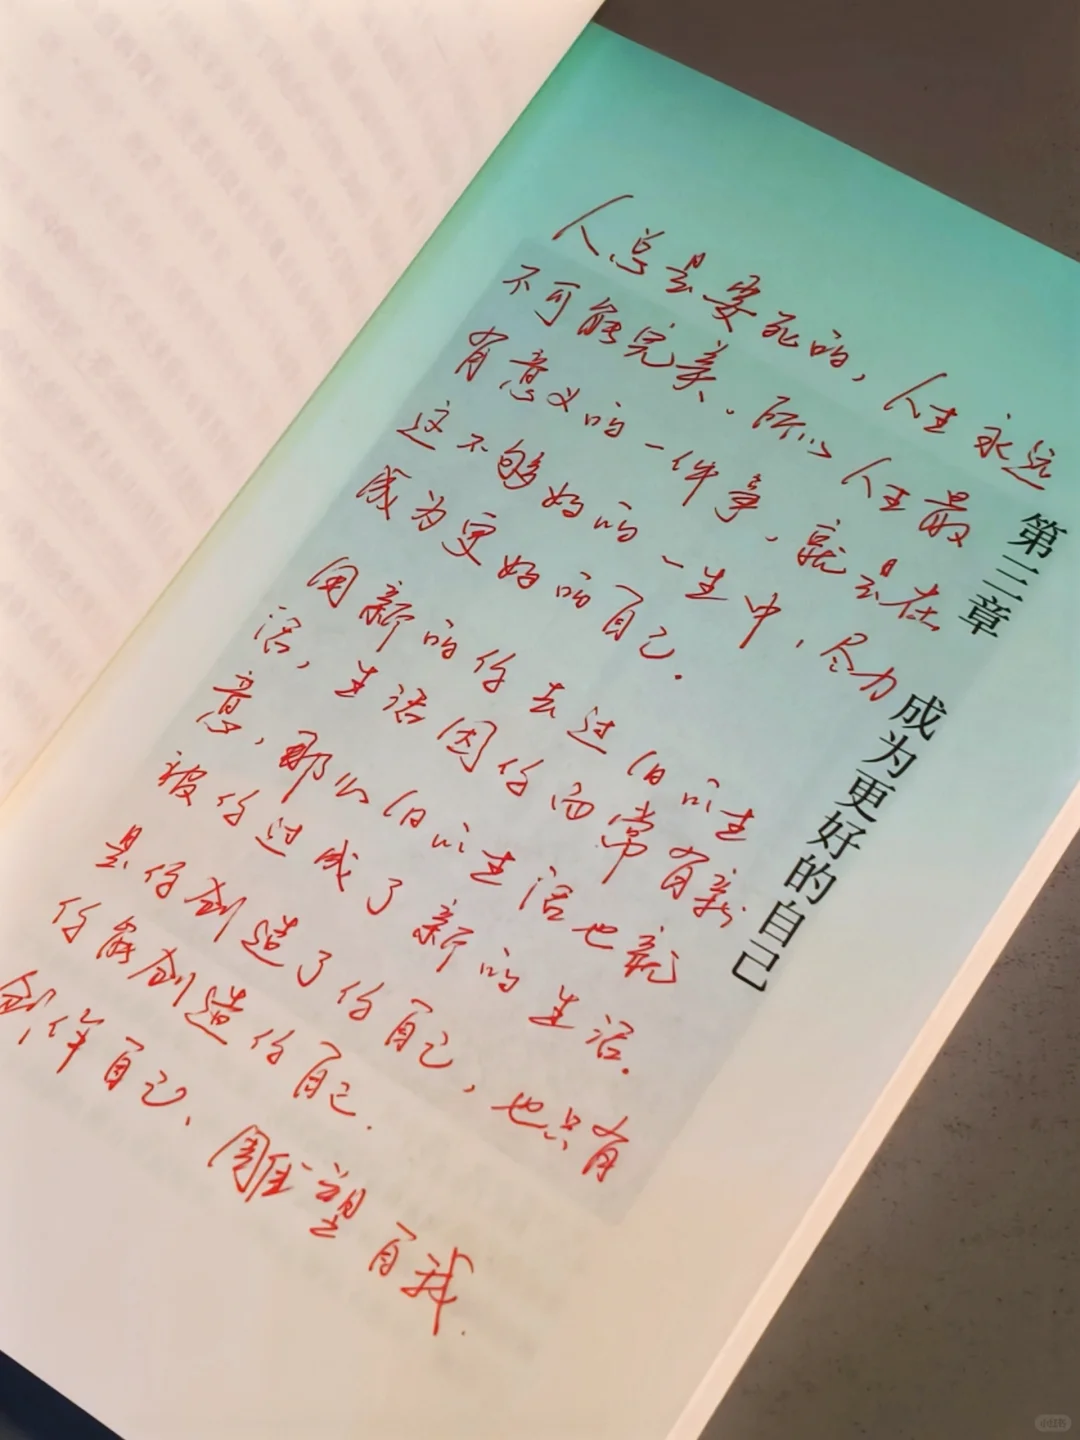 人总是要死的，人生永远
不可能完美。所以人生最
有意义的一件事，就是在
这不够好的一生中，尽力
成为更好的自己.
用新的你去过旧的生
活，生活因你而常有新
意，那么旧的生活也就
被你过成了新的生活.
是你创造了你自己，也只有
你能创造你自己.
创作自己、雕塑自我.
第三章 成为更好的自己
小红书